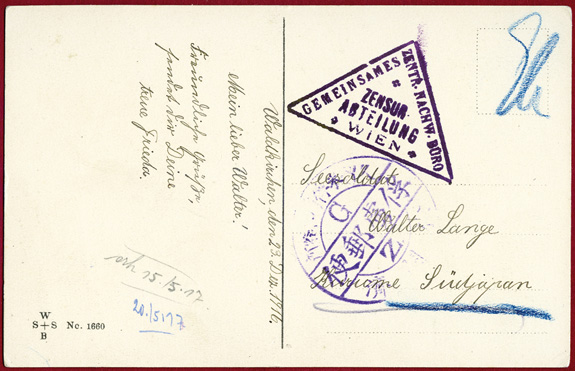 Waldkirchen, den 23. Dez. 1916.
Mein lieber Walter!
Freundliche Grüße,
sendet Dir Deine
treue Frieda.
15./5. 17
20./5 17
W
S+S No. 1660
B
GEMEINSAMES ZENTR. NACHW. BÜRO
ZENSUR-
ABTEILUNG
WIEN
俘虜郵便
Walter Lange
Südjapan